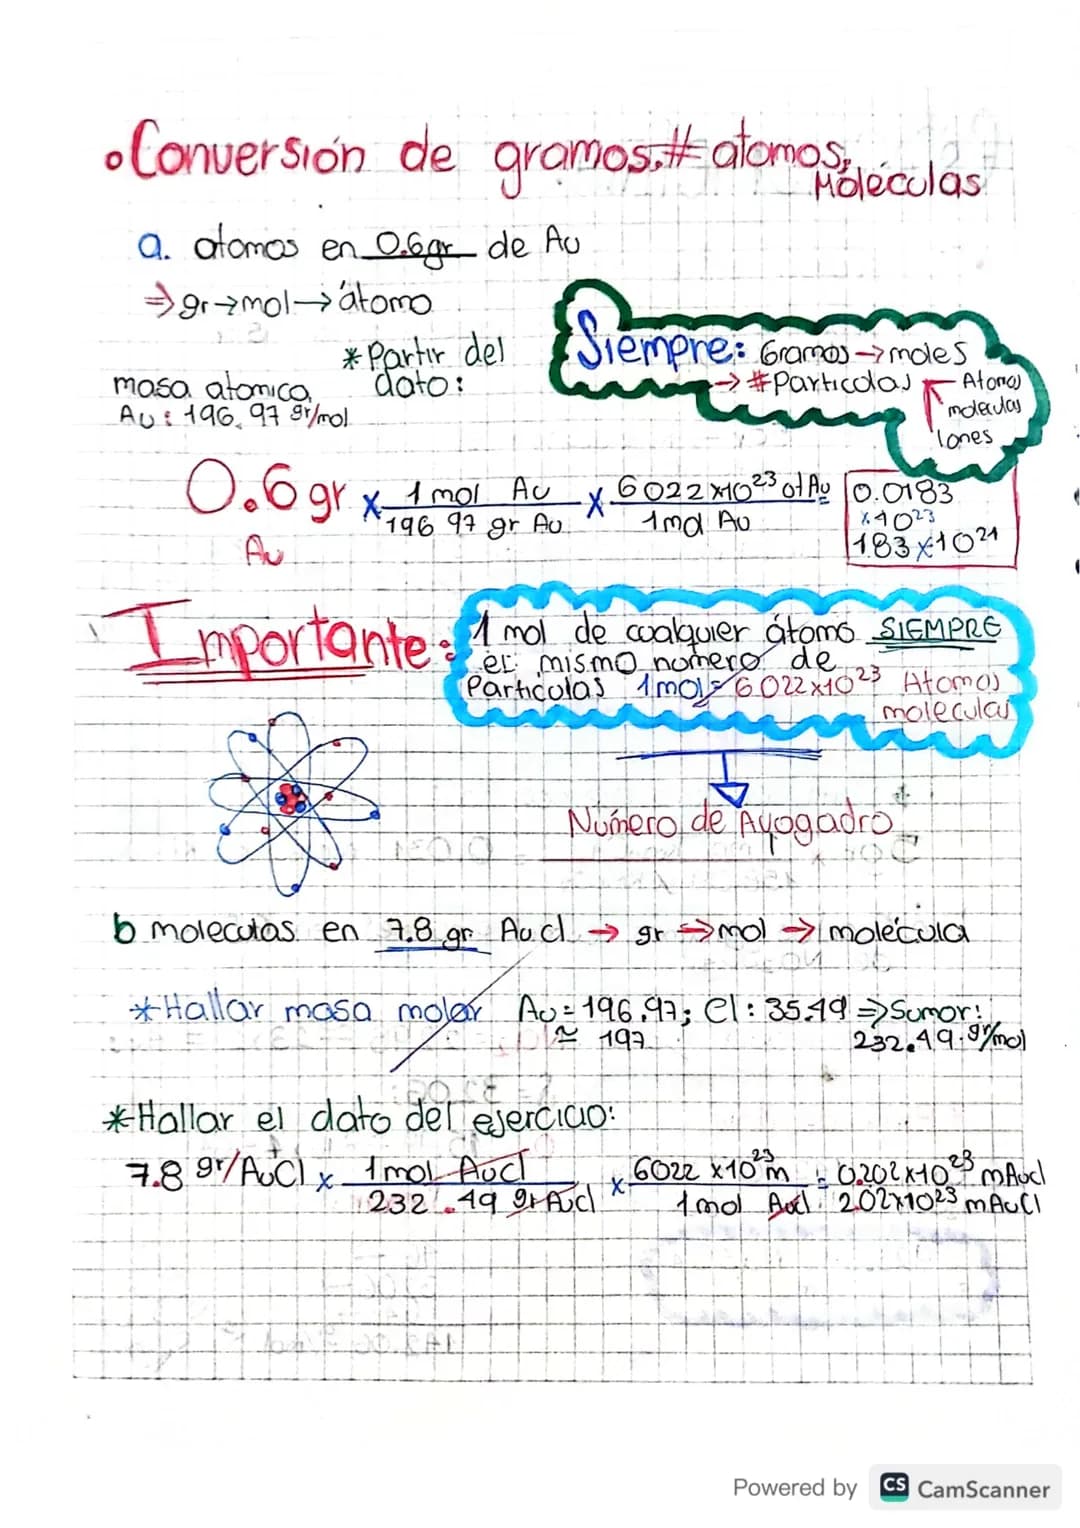 •Conversión de gramos,# atomos,
Moléculas
a. atomos en 0.6gr de Au
⇒gr→mol→átomo
Siempre: Gramos→moles
→#Particulas
Atomos
moleculas
Iones
*Partir del
dato:
masa atomica
Au: 196.97 gr/mol
0.6 gr Au x 1 mol Au / 196 97 gr Au x 6022x10²³ at Au / 1mol Au =
0.0183
x10²³
1.83x10²¹
Importante:
1 mol de cualquier átomo SIEMPRE
el mismo numero de
Particulas 1mol=6.022x10²³ Atomos
moleculas
Número de Avogadro
b moleculas en 7.8 gr AuCl → gr →mol →molécula
*Hallar masa molar Au=196.97; Cl:35.49⇒Sumar:
≈ 197 232.49 gr/mol
*Hallar el dato del ejercicio:
7.8 gr/AuCl x 1mol AuCl / 232.49 grAucl x 6022 x10²³m / 1mol Aucl = 0.202x10²³ mAucl
2.02x10²³ mAuCl
Powered by CS CamScanner